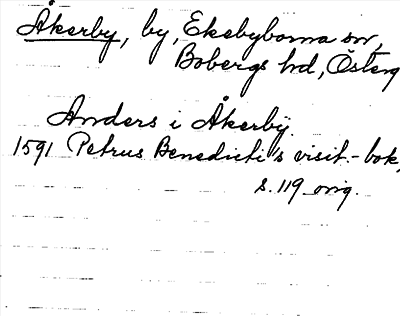 Åkerby, by, Ekebyborna sn,
Bobergs hd, Österg
Anders i Åkerby.
1591 Petrus Benedicti's visit.-bok,
s. 119 orig.